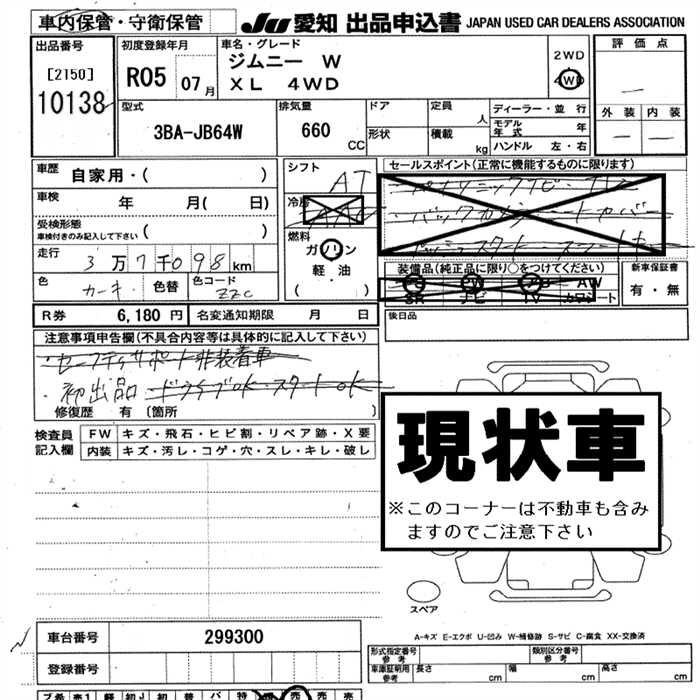 車内保管・守衛保管
JU 愛知 出品申込書 JAPAN USED CAR DEALERS ASSOCIATION
出品番号
[2150]
10138
初度登録年月
R05 07月
車名・グレード
ジムニー W
XL 4WD
2WD
4WD
評価点
—
外装 内装
— —
型式
3BA-JB64W
排気量
660 CC
ドア
形状
定員 人
積載 kg
ディーラー・並行
モデル年式 年
ハンドル 左・右
車歴
自家用・( )
車検 年 月( 日)
受検形態
車検付きのみ記入して下さい ( )
走行
3万7千098km
色 カーキ 色替 色コード ZZC
シフト
AT
冷房
AAC
燃料
ガソリン
軽・油
( )
セールスポイント(正常に機能するものに限ります)
パナソニックナビ・TV
バックカメラ シートカバー
プッシュスタート スマートキー
装備品(純正品に限り○をつけてください)
PS PW AB AW
SR ナビ TV カワシート
新車保証書
有・無
R券 6,180円 名変通知期限 月 日
後日品
注意事項申告欄(不具合内容等は具体的に記入して下さい)
・セーフティサポート非装着車
・初出品
修復歴 有 〔箇所 〕
検査員記入欄
FW キズ・飛石・ヒビ割・リペア跡・X要
内装 キズ・汚レ・コゲ・穴・スレ・キレ・破レ
現状車
※このコーナーは不動車も含みますのでご注意下さい
スペア
A-キズ E-エクボ U-凹み W-補修跡 S-サビ C-腐食 XX-交換済
車台番号 299300
登録番号
形式指定番号 参考
類別区分番号 参考
車庫証明用 参考 長さ cm 幅 cm 高さ cm